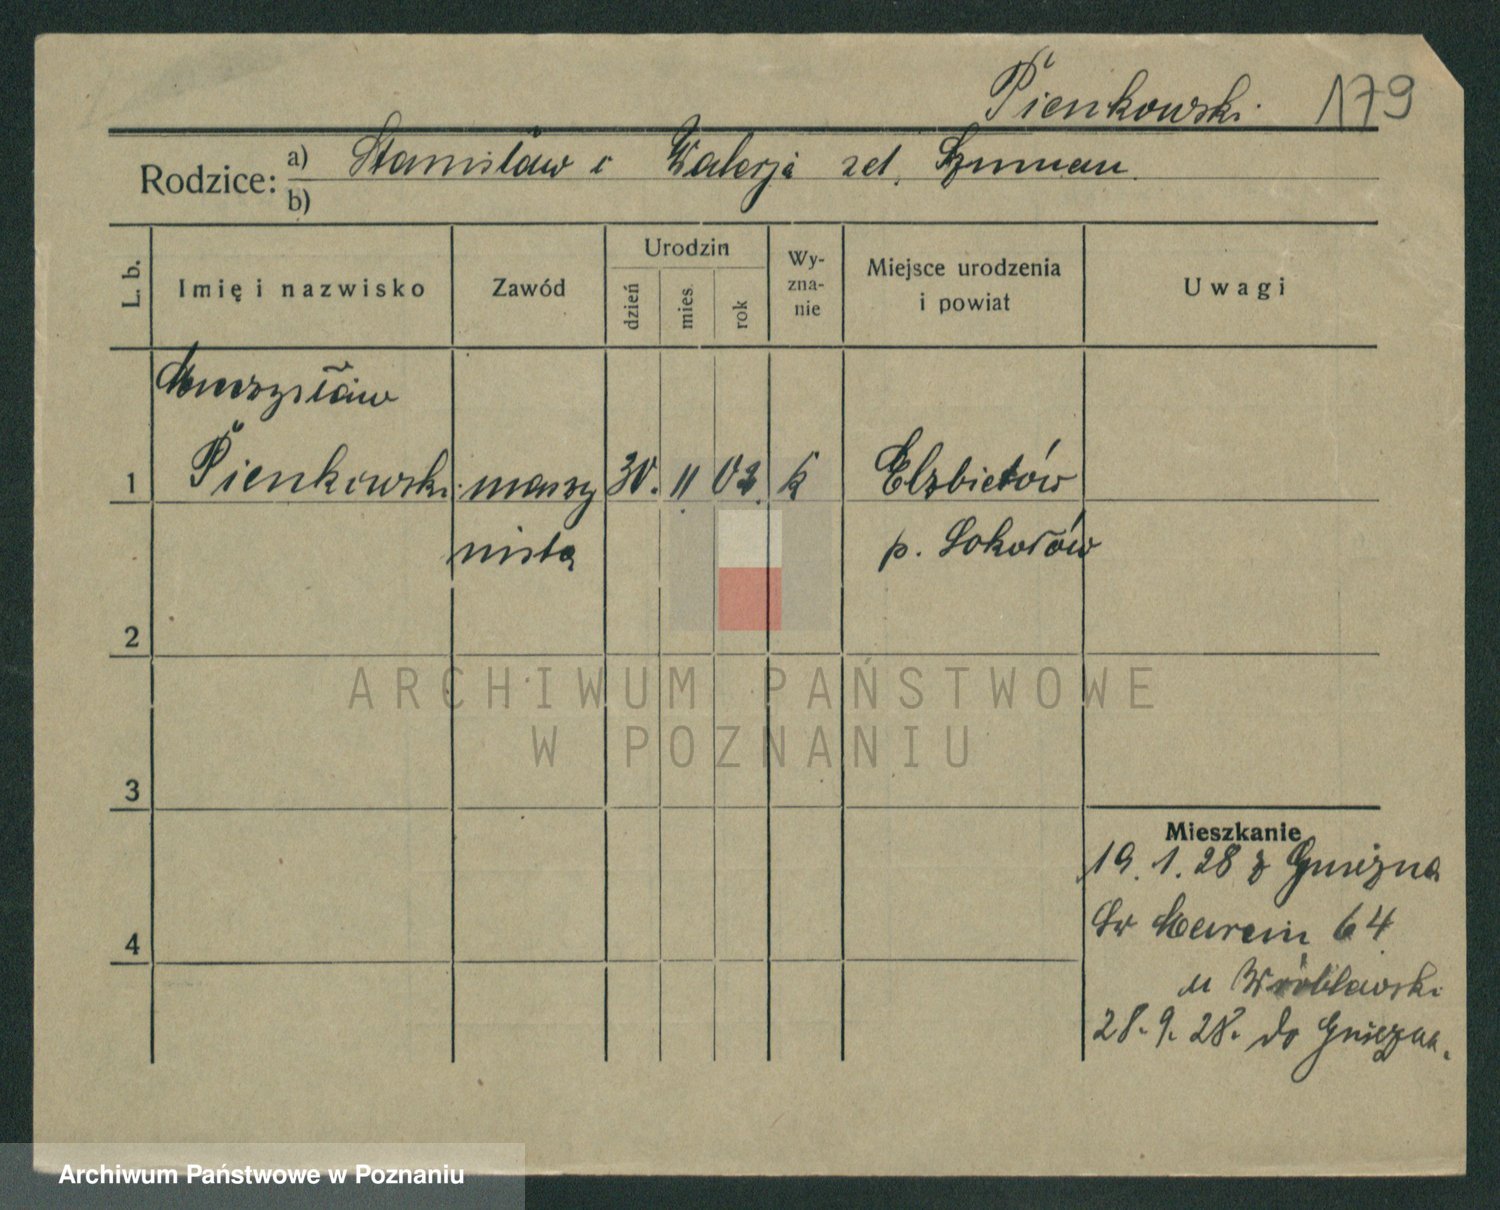 Pienkowski 179
Rodzice: a) Stanisław i Walerja zd. Szuman
b)
L. b.
Imię i nazwisko
Zawód
Urodzin
dzień
mies.
rok
Wy-
zna-
nie
Miejsce urodzenia
i powiat
Uwagi
Mieczysław
1 Pienkowski maszy 30. 11 02. k Elzbietów
nista p. Sokołów
2
3
4
Mieszkanie
19. 1. 28 z Gniezna
Św Marcin 64
u Wróblewski
28. 9. 28. do Gniezna.
ARCHIWUM PAŃSTWOWE
W POZNANIU
Archiwum Państwowe w Poznaniu